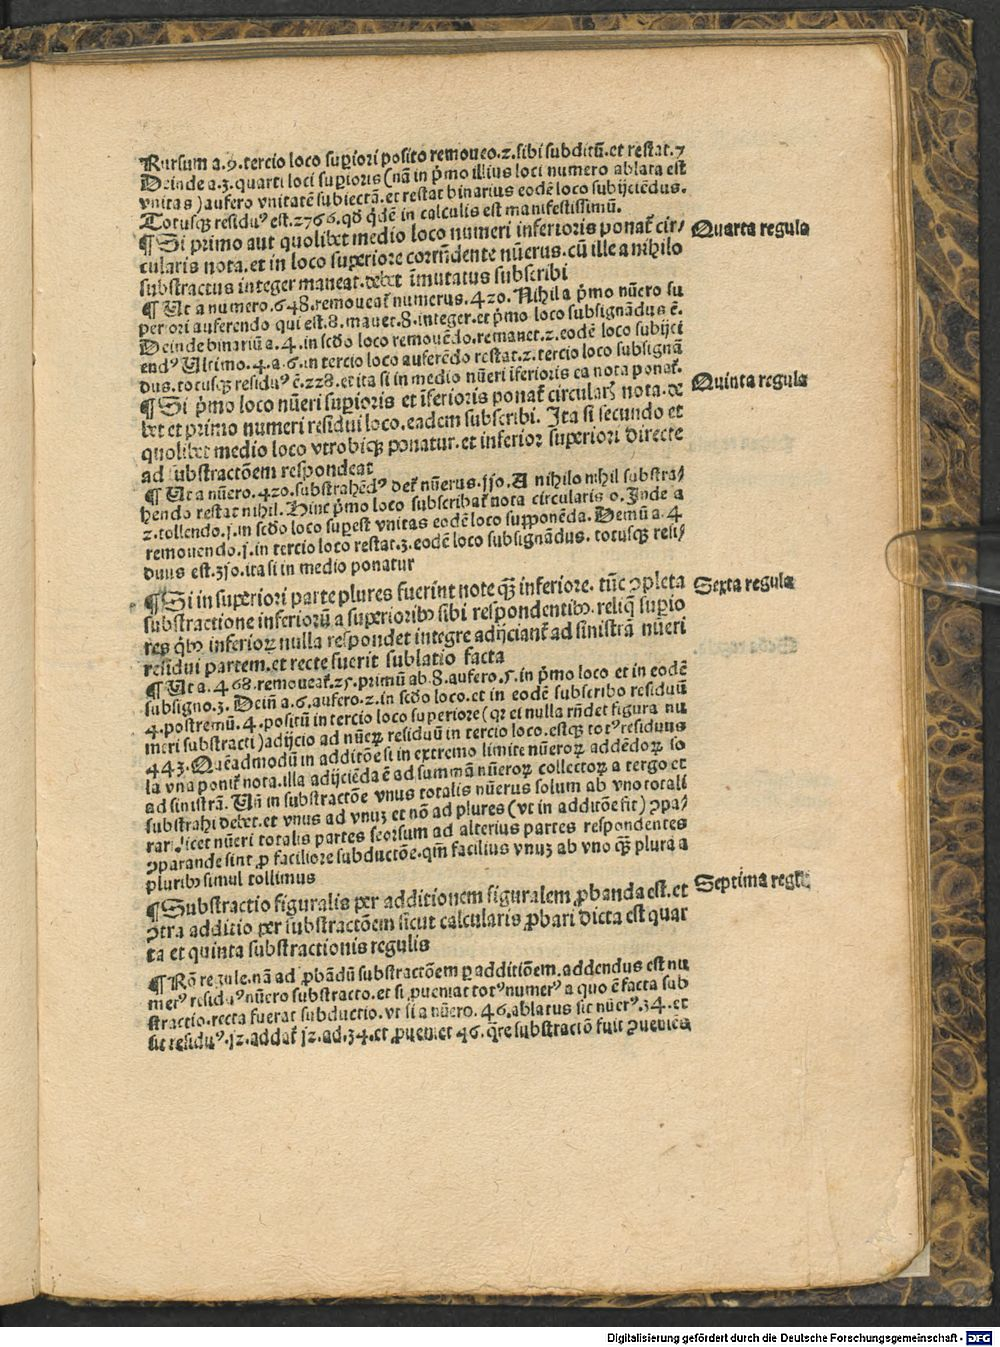 Rursum a.9.tercio loco suꝑiori posito remoueo.2.sibi subditū.et restat.7
Deinde a.3.quarti loci suꝑioris (nā in pͥmo illius loci numero ablata est
vnitas) aufero vnitatē subiectā.et restat binarius eodē loco subijciēdus.
Totusqꝫ residuꝰ est.2766.qđ qͥdē in calculis est manifestissimū.
¶ Si primo aut quolibet medio loco numeri inferioris ponat᷑ cir⸗
cularis nota.et in loco superiore corrn̄dente nūerus.cū ille a nihilo
substractus integer maneat.debet īmutatus subscribi
Quarta regula
¶ Ut a numero.648.remoueat᷑ numerus.420. Nihil a pͥmo nūero su
periori auferendo qui est.8.manet.8.integer.et pͥmo loco subsignādus ē.
Deinde binariū a.4.in scđo loco remouēdo.remanet.2.eodē loco subijci
endꝰ Ultimo.4.a.6.in tercio loco auferēdo restat.2.tercio loco subsignā
dus.totusqꝫ residuꝰ ē.228.et ita si in medio nūeri īferioris ea nota ponat᷑.
¶ Si pͥmo loco nūeri suꝑioris et īferioris ponat᷑ circularꝭ nota.de
bet et primo numeri residui loco.eadem subscribi. Ita si secundo et
quolibet medio loco vtrobiqꝫ ponatur.et inferior superiori directe
ad substractōem respondeat
Quinta regula
¶ Ut a nūero.420.substrahēdꝰ det᷑ nūerus.110.A nihilo nihil substra⸗
hendo restat nihil. Hinc pͥmo loco subscribat᷑ nota circularis 0.Inde a
2.tollendo.1.in scđo loco suꝑest vnitas eodē loco suppōnēda. Demū a.4
remouendo.1.in tercio loco restat.3.eodē loco subsignādus. totusqꝫ resi⸗
duus est.310.ita si in medio ponatur
¶ Si in superiori parte plures fuerint note qꝫ inferiore. tūc ꝯpleta
substractione inferiorū a superioribꝰ sibi respondentibꝰ.reliqͥ suꝑio
res qͥbꝰ inferioꝝ nulla respondet integre adijciant᷑ ad sinistrā nūeri
residui partem.et recte fuerit sublatio facta
Sexta regula
¶ Ut a.468.remoueat᷑.25.primū ab.8.aufero.5.in pͥmo loco et in eodē
subsigno.3. Dein̄ a.6.aufero.2.in scđo loco.et in eodē subscribo residuū
4.postremū.4.positū in tercio loco superiore (qꝛ ei nulla rn̄det figura nu
meri substracti) adijcio ad nūeꝝ residuū in tercio loco.estqꝫ totꝰ residuus
443. Quēadmodū in additōe si in extremo limite nūeroꝝ addēdoꝝ so
la vna ponit᷑ nota.illa adijciēda ē ad summā nūeroꝝ collectoꝝ a tergo et
ad sinistrā. Un̄ in substractōe vnus totalis nūerus solum ab vno totali
substrahi debet.et vnus ad vnuꝫ et nō ad plures (vt in additōe fit) ꝯpa⸗
rari licet nūeri totalis partes seorsum ad alterius partes respondentes
ꝯparande sint ꝓ faciliore subductōe.qm̄ facilius vnuꝫ ab vno qꝫ plura a
pluribꝰ simul tollimus
¶ Substractio figuralis per additionem figuralem ꝓbanda est.et
ꝯtra additio per substractōem sicut calcularis ꝓbari dicta est quar
ta et quinta substractionis regulis
Septima regula
¶ Rō regule.nā ad ꝓbādū substractōem ꝑ additiōem.addendus est nu
merꝰ residuꝰ nūero substracto.et si ꝓueniat totꝰ numerꝰ a quo ē facta sub
stractio.recta fuerat subductio.vt si a nūero.46.ablatus sit nūerꝰ.34.et
sit residuꝰ.12.addat᷑ 12.ad.34.et ꝓueniet 46.qͣre substractiō fuit ꝯueniēs
Digitalisierung gefördert durch die Deutsche Forschungsgemeinschaft - DFG